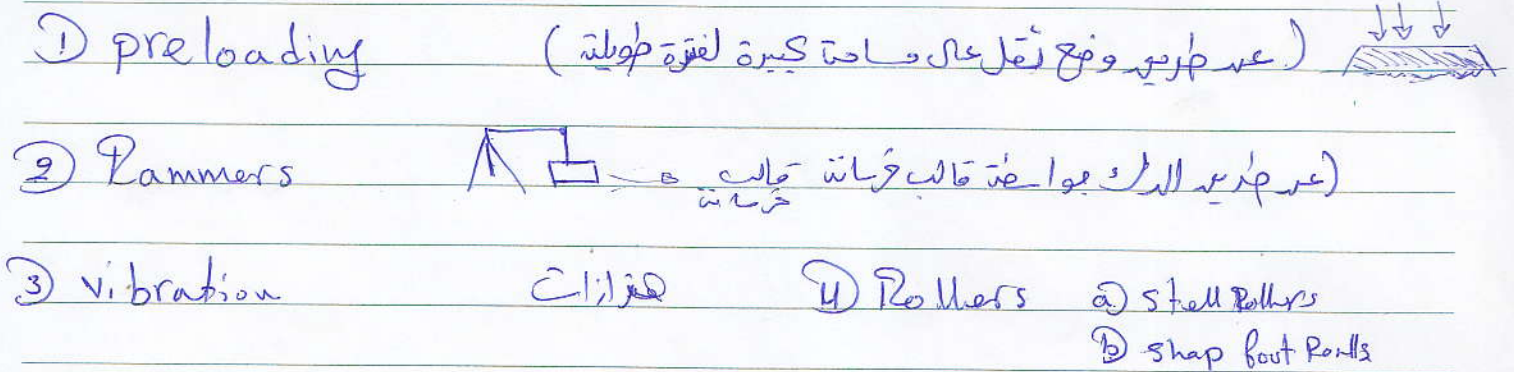 ① preloading (عن طريق وضع ثقل على مساحة كبيرة لفترة طويلة)
② Rammers قالب خرسانة (عن طريق الدك بواسطة قالب خرسانة)
③ vibration هزازات ④ Rollers ⓐ stell Rollers
ⓑ shap foot Rolls